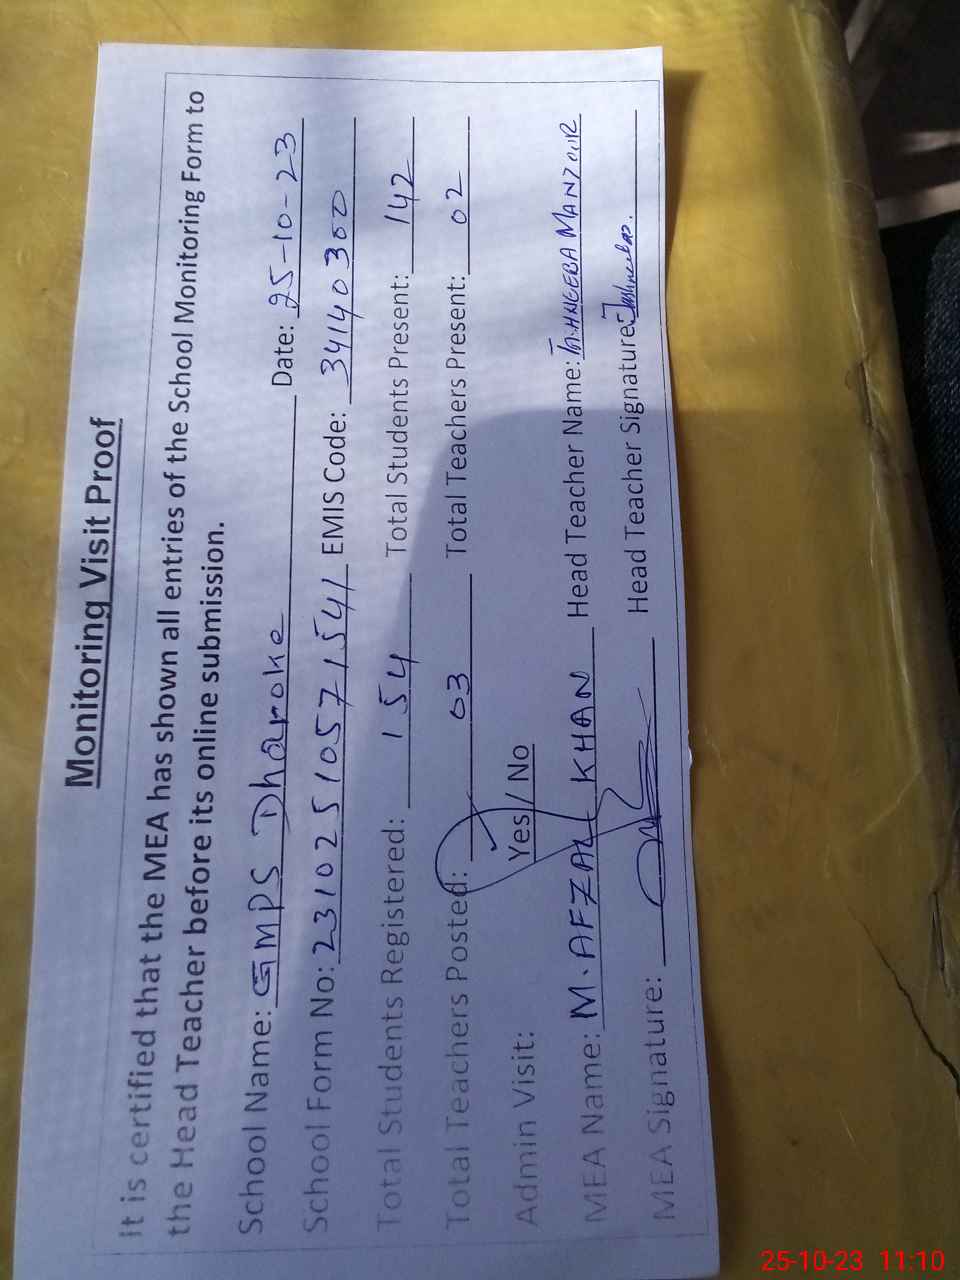 Monitoring Visit Proof
It is certified that the MEA has shown all entries of the School Monitoring Form to
the Head Teacher before its online submission.
School Name: GMPS Dharoke Date: 25-10-23
School Form No: 23102510571541 EMIS Code: 34140300
Total Students Registered: 154 Total Students Present: 142
Total Teachers Posted: 03 Total Teachers Present: 02
Admin Visit: Yes / No
MEA Name: M. AFZAL KHAN Head Teacher Name: MANZOOR
MEA Signature: Head Teacher Signature:
25-10-23 11:10